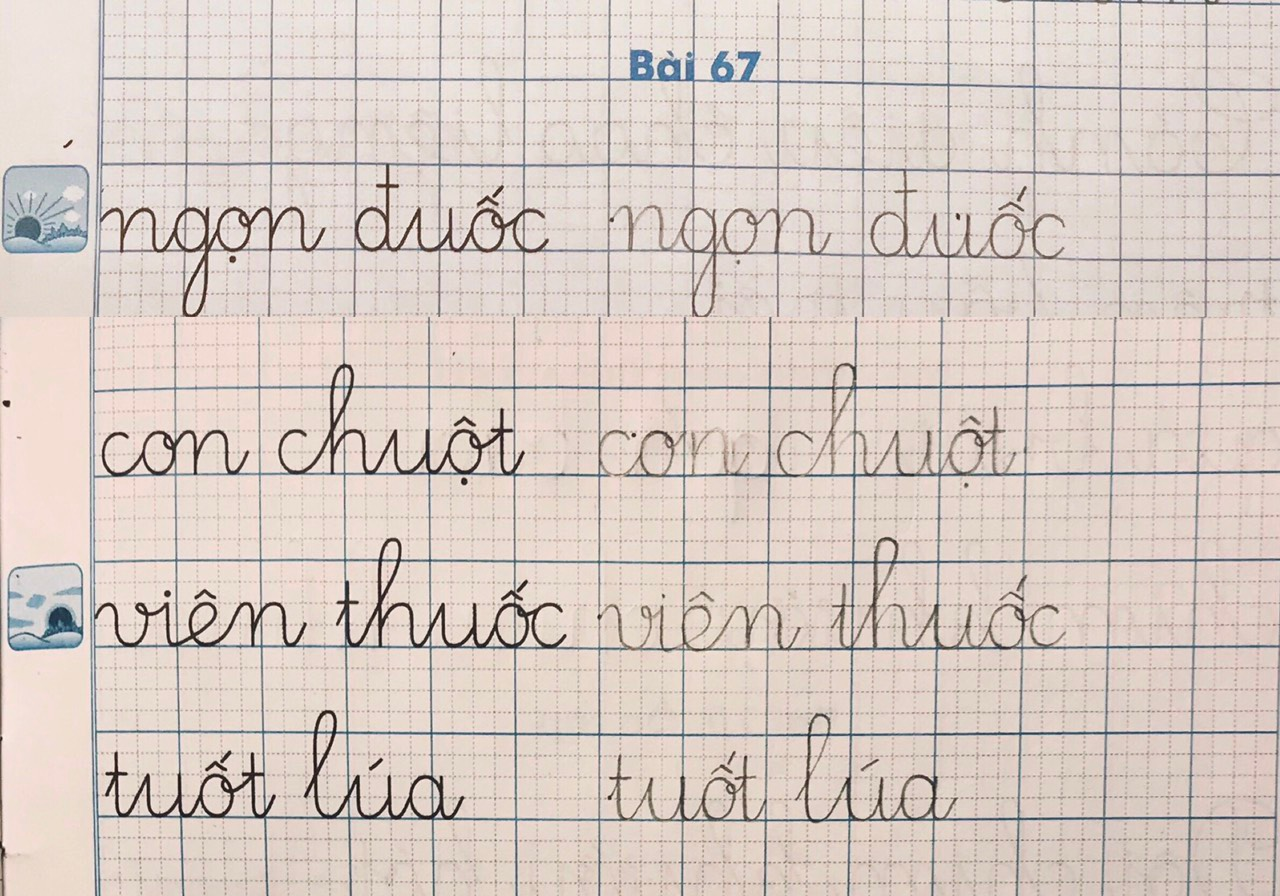 Bài 67
ngọn đuốc ngọn đuốc
con chuột con chuột
viên thuốc viên thuốc
tuốt lúa tuốt lúa